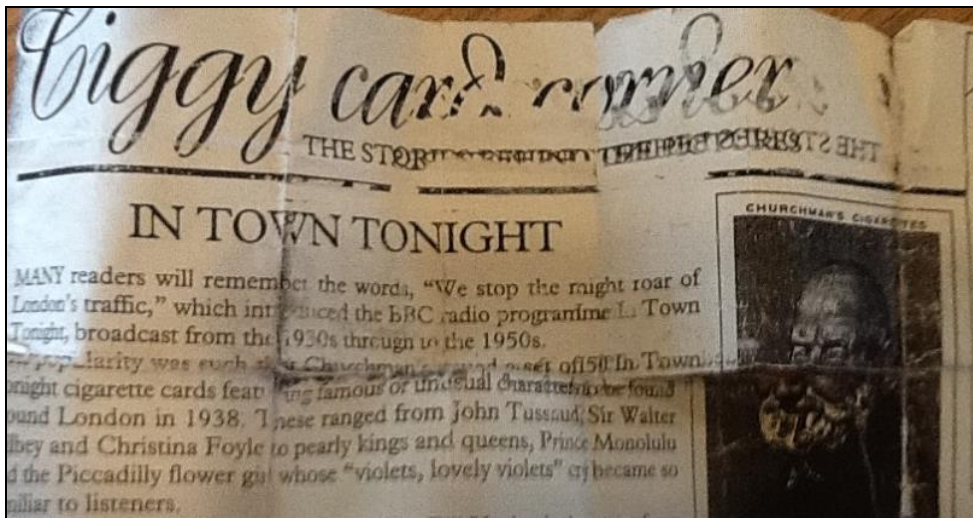 Ciggy card corner
THE STOR
IN TOWN TONIGHT
CHURCHMAN'S CIGARETTES
MANY readers will remember the words, "We stop the might roar of
London's traffic," which the BBC radio programme In Town
Tonight, broadcast from the 1930s through to the 1950s.
popularity was such that Churchman's a set of 50 In Town
onight cigarette cards featuring famous or unusual characters to be found
ound London in 1938. These ranged from John Tussaud, Sir Walter
lbey and Christina Foyle to pearly kings and queens, Prince Monolulu
d the Piccadilly flower girl whose "violets, lovely violets" cry became so
miliar to listeners.